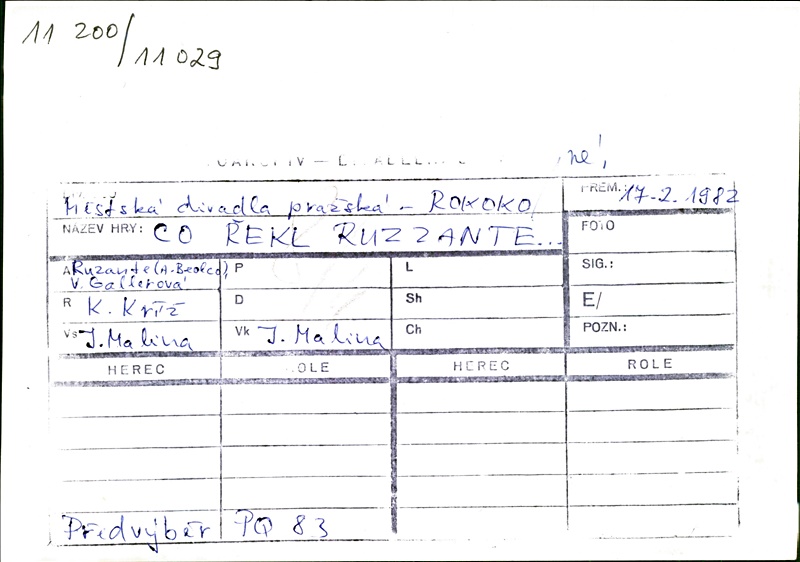 11 200/
11 029
né,
Městská divadla pražská - ROKOKO
PREM.: 17-2. 1982
NÁZEV HRY: CO ŘEKL RUZZANTE...
FOTO
A Ruzante (A. Beolco), V. Gallerová
P
L
SIG.:
R K. Kříž
D
Sh
E/
Vs J. Malina
Vk J. Malina
Ch
POZN.:
HEREC
OLE
HEREC
ROLE
Předvýběr PQ 83